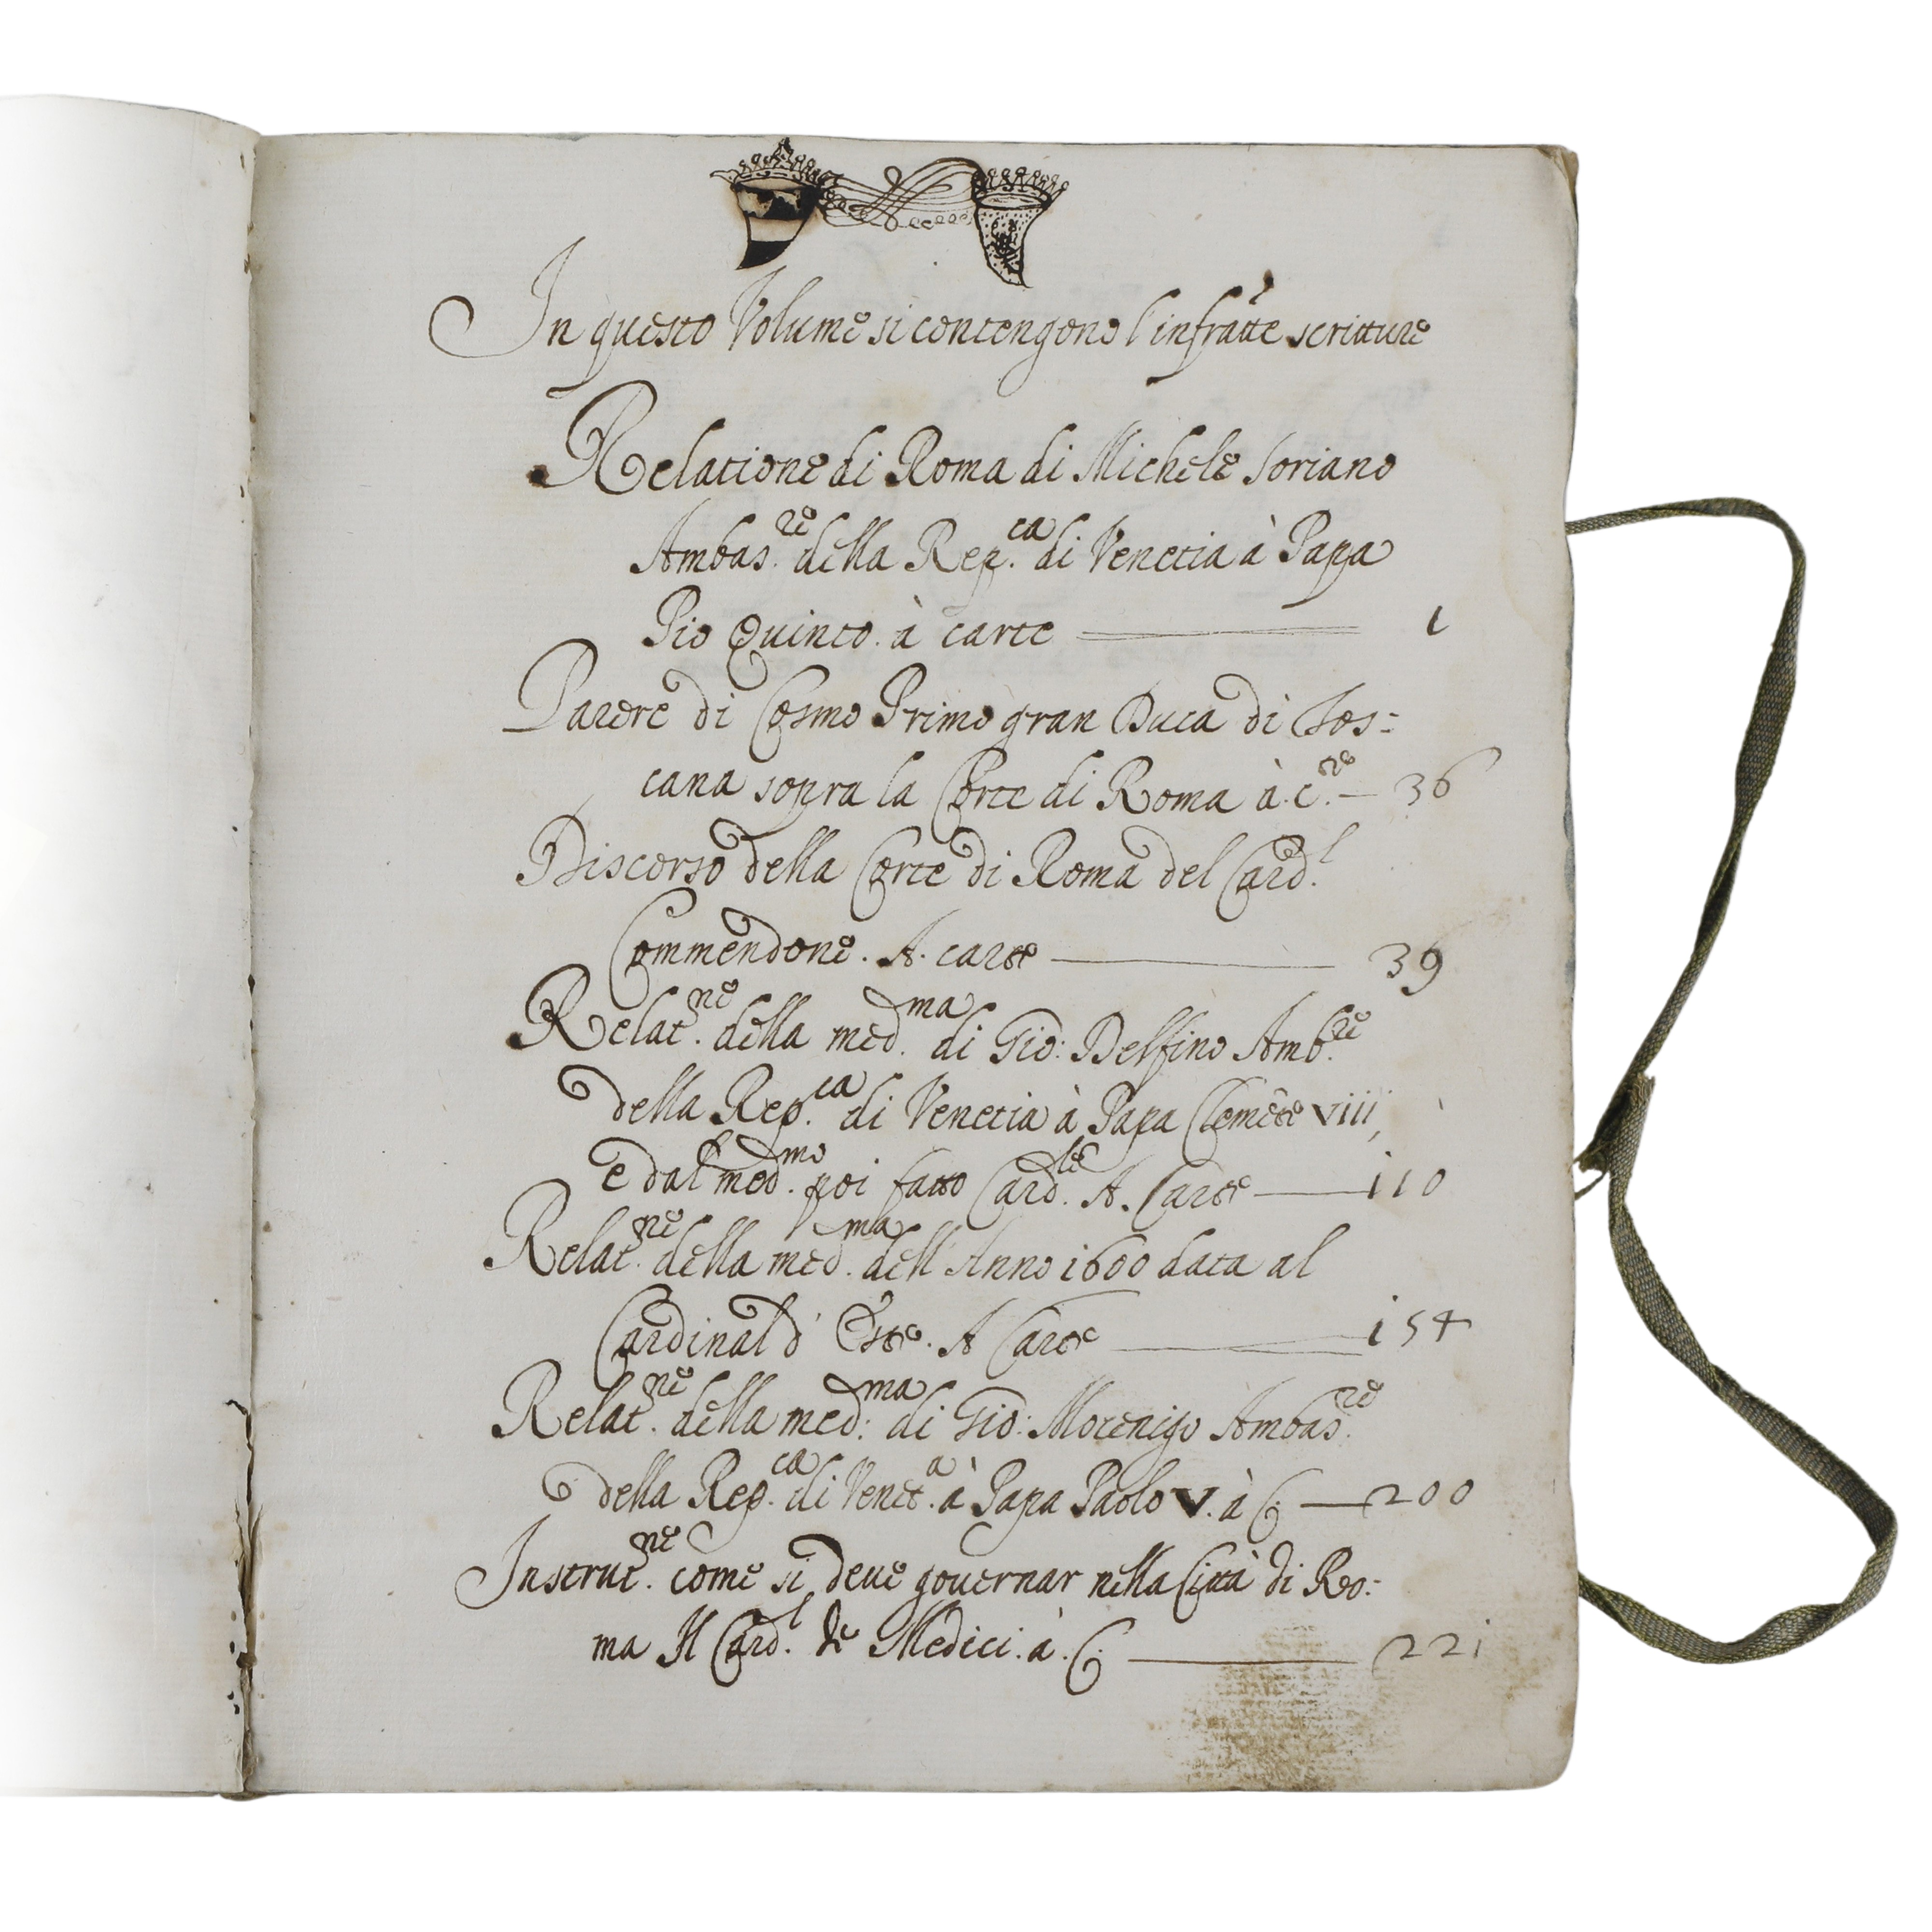 In questo Volume si contengono l'infratte scritture
Relatione di Roma di Michele Soriano
Ambas.re della Rep.ca di Venetia à Papa
Pio Quinto. à carte 1
Parere di Cosmo Primo gran Duca di Tos=
cana sopra la Corte di Roma à. c.re 36
Discorso della Corte di Roma del Card.l
Commendone. A. carte 39
Relat.ne della med.ma di Gio: Delfino Amb.re
della Rep.ca di Venetia à Papa Clemẽte VIII,
e dal med.mo poi fatto Card.le A. Carte 110
Relat.ne della med.ma dell'Anno 1600 data al
Cardinal d'Este. A Carte 154
Relat.ne della med:ma di Gio: Mocenigo Ambas.re
della Rep.ca di Venet.a à Papa Paolo V. à C. 200
Instrut.ne come si deve governar nella Città di Ro=
ma Il Card.l de Medici. à. C. 221